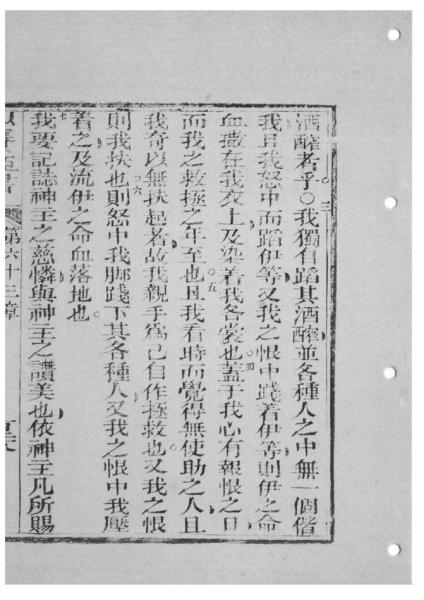 酒醡者乎○三我獨自蹈其酒醡並各種人之中無一個偕
我且我怒中而蹈伊等又我之恨中踐着伊等則伊之命
血撒在我衣上及染着我各裳也○四蓋于我心有報恨之日
而我之救拯之年至也○五且我看時而覺得無使助之人且
我奇以無扶起者故我親手爲己自作拯救也又我之恨
則我扶也○六則怒中我脚踐下其各種人又我之恨中我壓
着之及流伊之命血落地也○
七我要記誌神王之慈憐與神王之讚美也依神王凡所賜
第六十三章